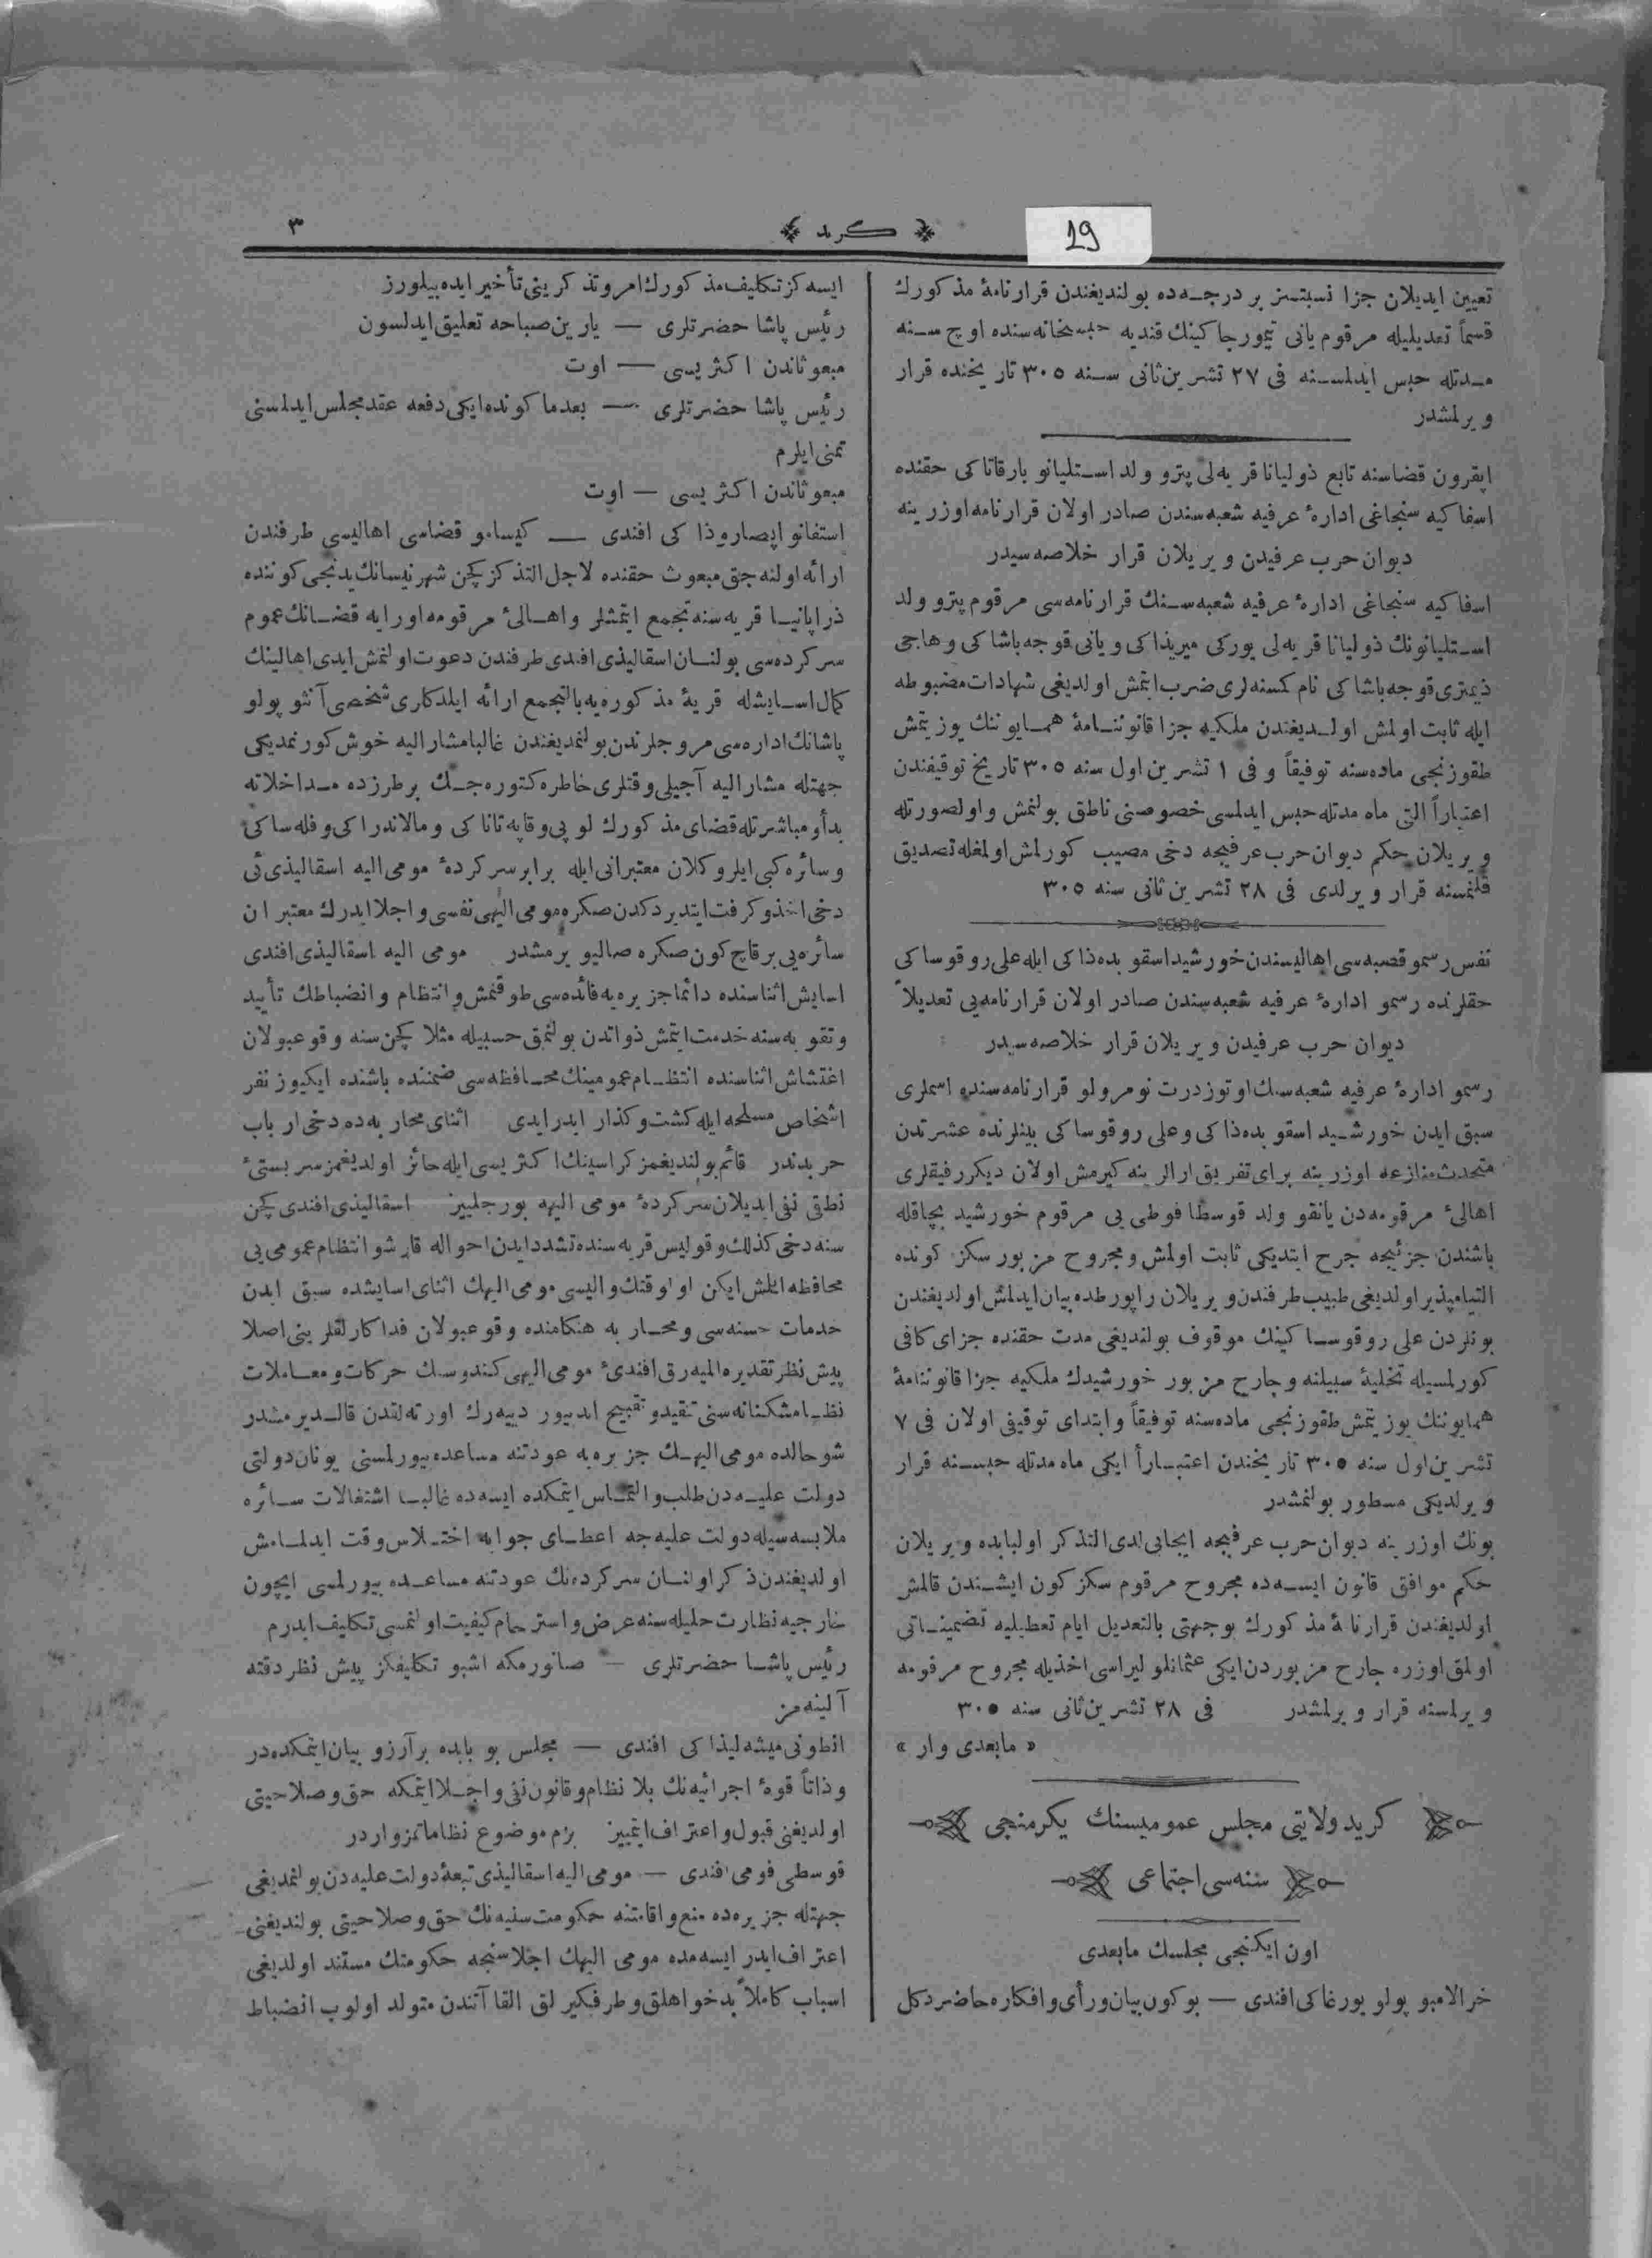 ٣
كريد
19
تعيين ايديلان جزا نسبتسز بر درجه‌ده بولنديغندن قرارنامهٔ مذكورك
قسماً تعديليله مرقوم يانى تيمورجاكينك قنديه حبسخانه‌سنده اوچ سنه
مدتله حبس ايدلسنه فى ٢٧ تشرين ثانى سنه ٣٠٥ تاريخنده قرار
ويرلمشدر
اپقرون قضاسنه تابع ذوليانا قريه‌لى پترو ولد استليانو بارقاتاكى حقنده
اسفاكيه سنجاغى ادارهٔ عرفيه شعبه‌سندن صادر اولان قرارنامه اوزرينه
ديوان حرب عرفيدن ويريلان قرار خلاصه‌سيدر
اسفاكيه سنجاغى ادارهٔ عرفيه شعبه‌سنك قرارنامه‌سى مرقوم پترو ولد
استليانونك ذوليانا قريه‌لى يوركى ميريذاكى و يانى قوجه‌باشاكى و هاجى
ذيمترى قوجه‌باشاكى نام كمسنه‌لرى ضرب ايتمش اولديغى شهادات مضبوطه
ايله ثابت اولمش اولديغندن ملكيه جزا قانوننامهٔ همايوننك يوز يتمش
طقوزنجى ماده‌سنه توفيقاً و فى ١ تشرين اول سنه ٣٠٥ تاريخ توقيفندن
اعتباراً التى ماه مدتله حبس ايدلمسى خصوصنى ناطق بولنمش و اولصورتله
ويريلان حكم ديوان حرب عرفيجه دخى مصيب كورلمش اولمغله تصديق
قلنمسنه قرار ويرلدى فى ٢٨ تشرين ثانى سنه ٣٠٥
نفس رسمو قصبه‌سى اهاليسندن خورشيد اسقوبده‌ذاكى ايله على روقوساكى
حقلرنده رسمو ادارهٔ عرفيه شعبه‌سندن صادر اولان قرارنامه‌يى تعديلاً
ديوان حرب عرفيدن ويريلان قرار خلاصه‌سيدر
رسمو ادارهٔ عرفيه شعبه‌سنك اوتوز درت نومرولو قرارنامه‌سنده اسملرى
سبق ايدن خورشيد اسقوبده‌ذاكى و على روقوساكى بينلرنده عشرتدن
متحدث منازعه اوزرينه براى تفريق ارالرينه كيرمش اولان ديكر رفيقلرى
اهالىٔ مرقومه‌دن يانقو ولد قوسطا فوطى يى مرقوم خورشيد بچاقله
باشندن جزئيجه جرح ايتديكى ثابت اولمش و مجروح مزبور سكز كونده
التيامپذير اولديغى طبيب طرفندن ويريلان راپورطده بيان ايدلمش اولديغندن
بونلردن على روقوساكينك موقوف بولنديغى مدت حقنده جزاى كافى
كورلمسيله تخليهٔ سبيلنه و جارح مزبور خورشيدك ملكيه جزا قانوننامهٔ
همايوننك يوز يتمش طقوزنجى ماده‌سنه توفيقاً و ابتداى توقيفى اولان فى ٧
تشرين اول سنه ٣٠٥ تاريخندن اعتباراً ايكى ماه مدتله حبسنه قرار
ويرلديكى مسطور بولنمشدر
بونك اوزرينه ديوان حرب عرفيجه ايجابى لدى التذكر اولبابده ويريلان
حكم موافق قانون ايسه‌ده مجروح مرقوم سكز كون ايشندن قالمش
اولديغندن قرارنامهٔ مذكورك بوجهتى بالتعديل ايام تعطيليه تضميناتى
اولمق اوزره جارح مزبوردن ايكى عثمانلو ليراسى اخذيله مجروح مرقومه
ويرلسنه قرار ويرلمشدر فى ٢٨ تشرين ثانى سنه ٣٠٥
« مابعدى وار »
كريد ولايتى مجلس عموميسنك يكرمنجى
سنه‌سى اجتماعى
اون ايكنجى مجلسك مابعدى
خرالامبو پولو يورغاكى افندى — بوكون بيان ورأى و افكاره حاضر دكل
ايسه‌كز تكليف مذكورك امر و تذكرينى تأخير ايده‌بيلورز
رئيس پاشا حضرتلرى — يارين صباحه تعليق ايدلسون
مبعوثاندن اكثريسى — اوت
رئيس پاشا حضرتلرى — بعدما كونده ايكى دفعه عقد مجلس ايدلسنى
تمنى ايلرم
مبعوثاندن اكثريسى — اوت
استفانو اپصاروذاكى افندى — كيسامو قضاسى اهاليسى طرفندن
ارائه اولنه‌جق مبعوث حقنده لاجل التذكر كچن شهر نيسانك يدنجى كوننده
ذراپانيا قريه‌سنه تجمع ايتمشلر و اهالىٔ مرقومه اورايه قضانك عموم
سركرده‌سى بولنان اسقاليذى افندى طرفندن دعوت اولنمش ايدى اهالينك
كمال اسايشله قريهٔ مذكوره‌يه بالتجمع ارائه ايلدكارى شخصى آنثوپولو
پاشانك اداره‌سى مروجلرندن بولنمديغندن غالبا مشاراليه خوش كورنمديكى
جهتله مشاراليه آجيلى وقتلرى خاطره كتوره‌جك بر طرزده مداخلاته
بدأ و مباشرتله قضاى مذكورك لوپى و قاپه‌تاناكى و مالاندراكى و فله‌ساكى
و سائره كبى ايلروكلان معتبرانى ايله برابر سركردهٔ مومى اليه اسقاليذى‌ئى
دخى اخذ و كرفت ايتديردكدن صكره مومى اليهى نفسى و اجلا ايدرك معتبران
سائره‌يى برقاچ كون صكره صاليويرمشدر مومى اليه اسقاليذى افندى
اسايش اثناسنده دائما جزيره‌يه فائده‌سى طوقنمش و انتظام و انضباطك تأييد
و تقويه‌سنه خدمت ايتمش ذواتدن بولنمق حسبيله مثلا كچن سنه وقوعبولان
اغتشاش اثناسنده انتظام عمومينك محافظه‌سى ضمننده باشنده ايكيوز نفر
اشخاص مسلحه ايله كشت و كذار ايدر ايدى اثناى محاربه‌ده دخى ارباب
حربدندر قائم بولنديغمز كراسينك اكثريسى ايله حائز اولديغمز سربستىٔ
نطقى نفى ايديلان سركردهٔ مومى اليهه بورجليز اسقاليذى افندى كچن
سنه دخى كذلك و قوليس قريه‌سنده تشدد ايدن احواله قارشو انتظام عمومى‌يى
محافظه ايلمش ايكن او وقتك واليسى مومى اليهك اثناى اسايشده سبق ايدن
خدمات حسنه‌سى و محاربه هنكامنده وقوعبولان فداكارلقلرينى اصلا
پيش نظر تقديره الميه‌رق افندىٔ مومى اليهى كندوسنك حركات و معاملات
نظامشكنانه‌سنى تنقيد و تقبيح ايدييور دييه‌رك اورته‌لقدن قالديرمشدر
شو حالده مومى اليهك جزيره‌يه عودتنه مساعده بيورلمسنى يونان دولتى
دولت عليه‌دن طلب و التماس ايتمكده ايسه‌ده غالبا اشتغالات سائره
ملابسه‌سيله دولت عليه‌جه اعطاى جوابه اختلاس وقت ايدلمامش
اولديغندن ذكر اولنان سركرده‌نك عودتنه مساعده بيورلمسى ايچون
خارجيه نظارت جليله‌سنه عرض و استرحام كيفيت اولنمسى تكليف ايدرم
رئيس پاشا حضرتلرى — صانورمكه اشبو تكليفكز پيش نظر دقته
آلينه‌مز
انطونى ميشه‌ليذاكى افندى — مجلس بو بابده بر آرزو بيان ايتمكده‌در
و ذاتاً قوهٔ اجرائيه‌نك بلا نظام و قانون نفى و اجلا ايتمكه حق و صلاحيتى
اولديغنى قبول و اعتراف ايتمييز بزم موضوع نظاماتمز واردر
قوسطى فومى افندى — مومى اليه اسقاليذى تبعهٔ دولت عليه‌دن بولنمديغى
جهتله جزيره‌ده منع و اقامتنه حكومت سنيه‌نك حق و صلاحيتى بولنديغنى
اعتراف ايدر ايسه‌مده مومى اليهك اجلاسنجه حكومتك مستند اولديغى
اسباب كاملاً بدخواهلق و طرفكيرلق القاآتندن متولد اولوب انضباط